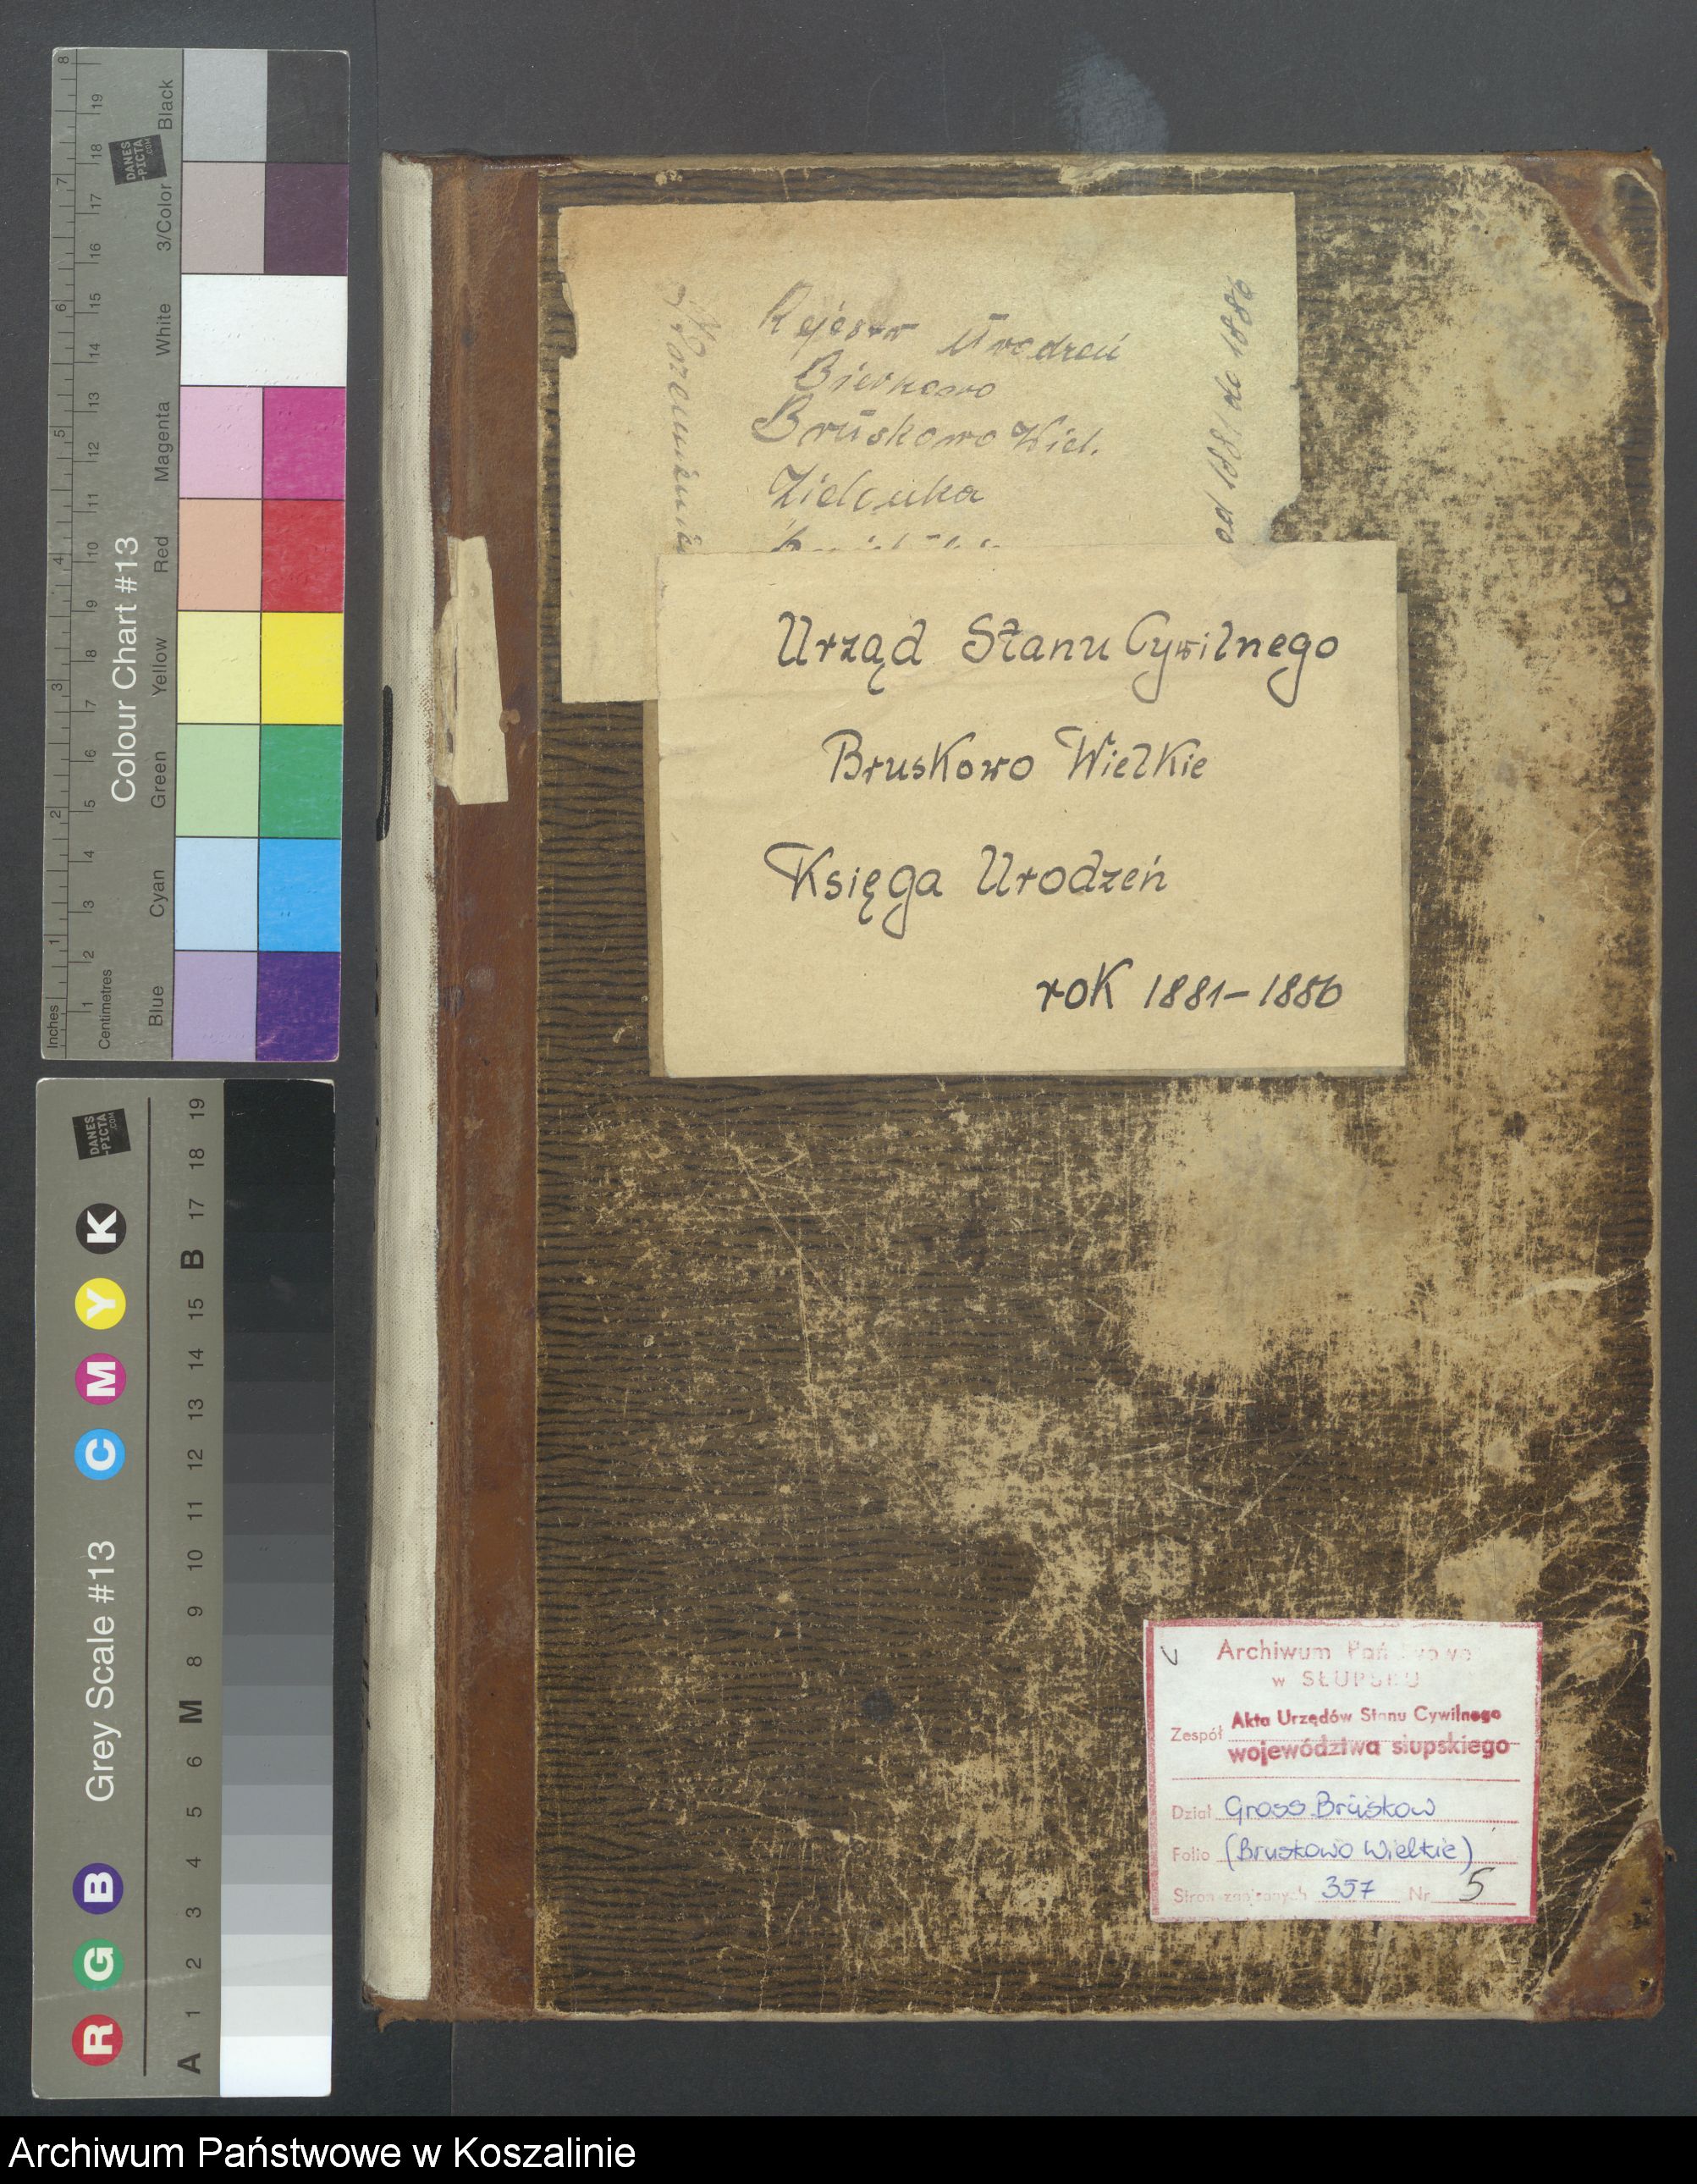 Rejestr Urodzeń
Bierkowo
Bruskowo Wiel.
Zielonka
od 1881 do 1886
Urząd Stanu Cywilnego
Bruskowo Wielkie
Księga Urodzeń
rok 1881–1886
Archiwum Państwowe
w SŁUPSKU
Zespół Akta Urzędów Stanu Cywilnego
województwa słupskiego
Dział Gross Brüskow
Folio (Bruskowo Wielkie)
Stron zapisanych 357 Nr 5
Inches 1 2 3 4 5 6 7 8
Centimetres 1 2 3 4 5 6 7 8 9 10 11 12 13 14 15 16 17 18 19
Colour Chart #13
Blue Cyan Green Yellow Red Magenta White 3/Color Black
DANES
-PICTA
.COM
Grey Scale #13
R G B C M Y K
A 1 2 3 4 5 6 M 8 9 10 11 12 13 14 15 B 17 18 19
DANES
-PICTA
.COM
Archiwum Państwowe w Koszalinie